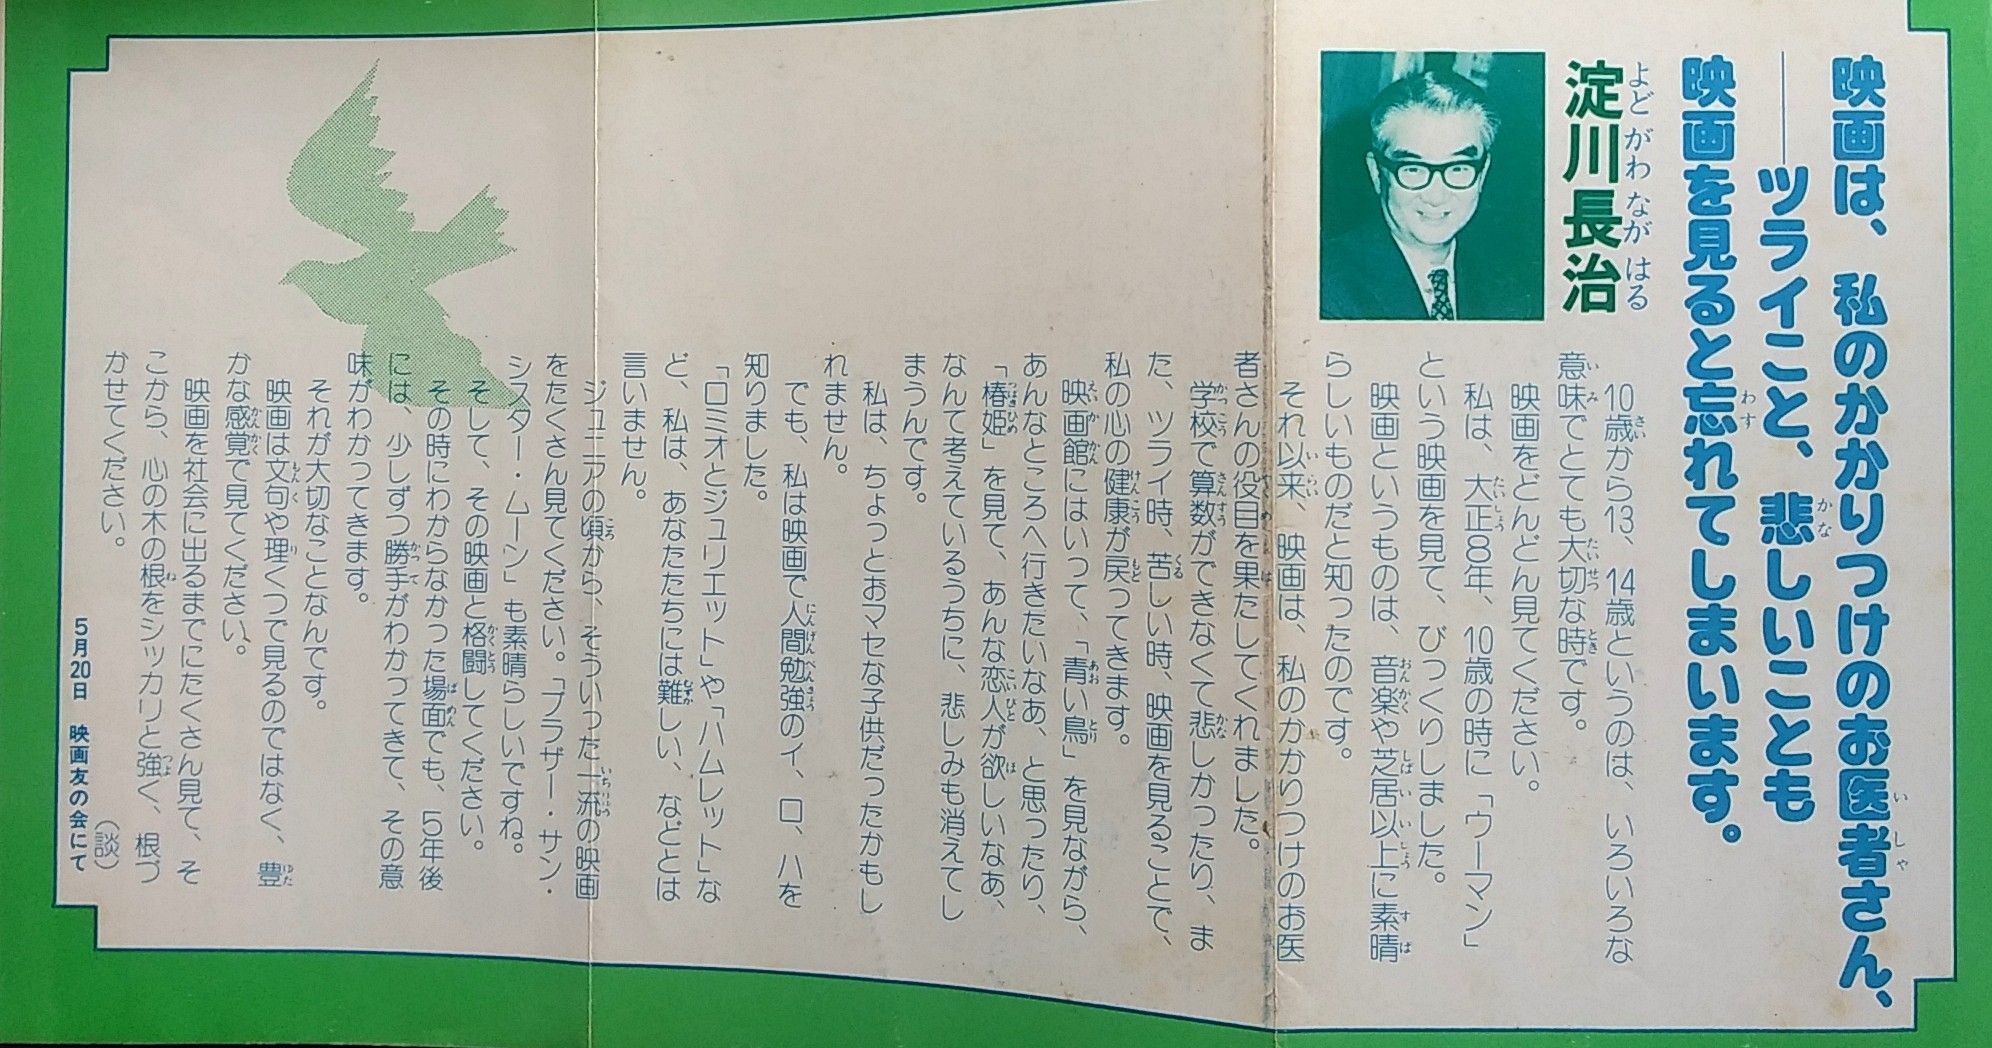 映画は、私のかかりつけのお医者さん、
――ツライこと、悲しいことも
映画を見ると忘れてしまいます。
淀川長治
よどがわながはる
10歳から13、14歳というのは、いろいろな
意味でとても大切な時です。
映画をどんどん見てください。
私は、大正8年、10歳の時に「ウーマン」
という映画を見て、びっくりしました。
映画というものは、音楽や芝居以上に素晴
らしいものだと知ったのです。
それ以来、映画は、私のかかりつけのお医
者さんの役目を果たしてくれました。
学校で算数ができなくて悲しかったり、ま
た、ツライ時、苦しい時、映画を見ることで、
私の心の健康が戻ってきます。
映画館にはいって、「青い鳥」を見ながら、
あんなところへ行きたいなあ、と思ったり、
「椿姫」を見て、あんな恋人が欲しいなあ、
なんて考えているうちに、悲しみも消えてし
まうんです。
私は、ちょっとおマセな子供だったかもし
れません。
でも、私は映画で人間勉強のイ、ロ、ハを
知りました。
「ロミオとジュリエット」や「ハムレット」な
ど、私は、あなたたちには難しい、などとは
言いません。
ジュニアの頃から、そういった一流の映画
をたくさん見てください。「ブラザー・サン・
シスター・ムーン」も素晴らしいですね。
そして、その映画と格闘してください。
その時にわからなかった場面でも、5年後
には、少しずつ勝手がわかってきて、その意
味がわかってきます。
それが大切なことなんです。
映画は文句や理くつで見るのではなく、豊
かな感覚で見てください。
映画を社会に出るまでにたくさん見て、そ
こから、心の木の根をシッカリと強く、根づ
かせてください。
(談)
5月20日 映画友の会にて